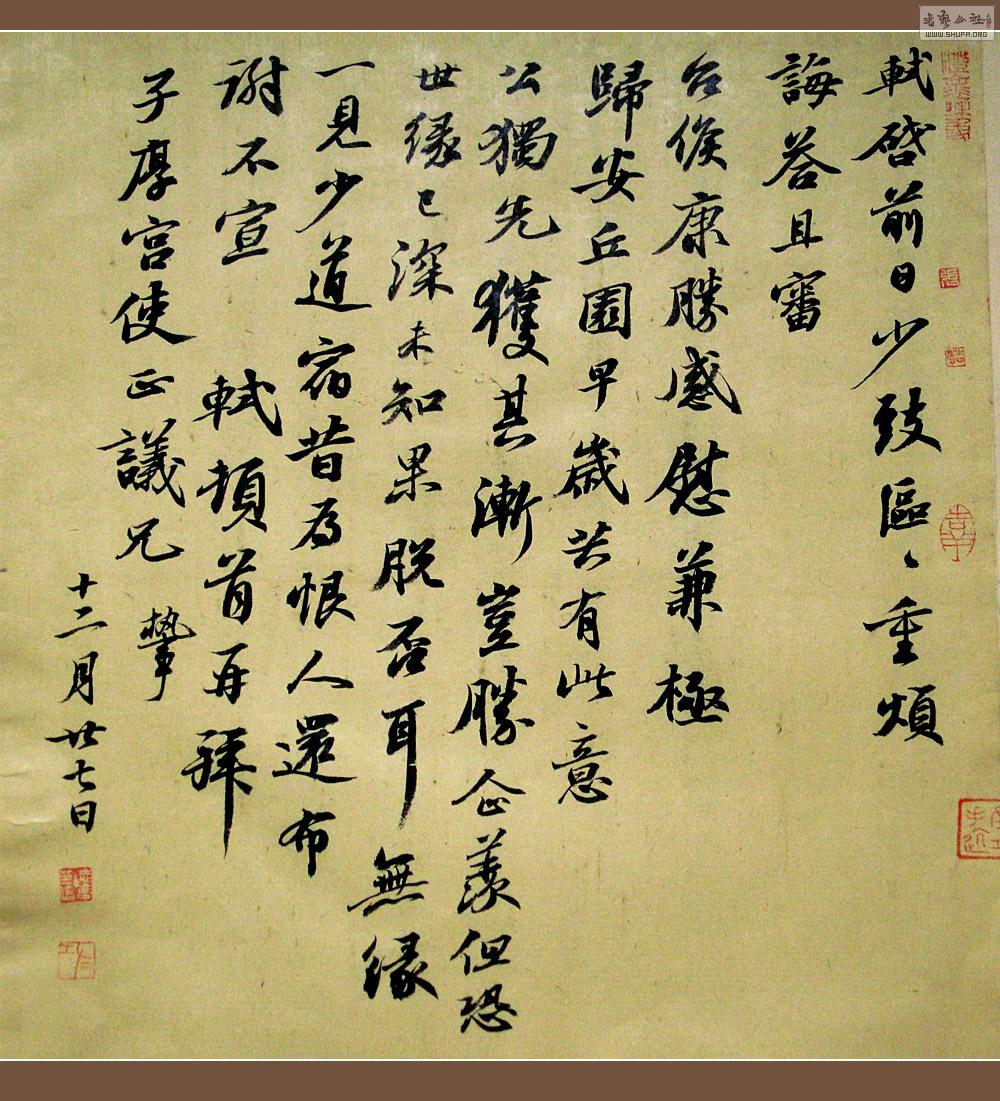 軾啓前日少致區〻重煩
誨荅且審
台候康勝感慰兼極
歸安丘園早歲共有此意
公獨先獲其漸豈勝企羨但恐
世緣已深未知果脫否耳無緣
一見少道宿昔為恨人還布
謝不宣 軾頓首再拜
子厚宮使正議兄 執事
十二月廿七日
WWW.SHUFA.ORG